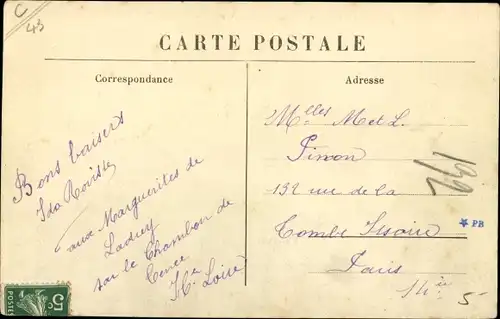 C
45
CARTE POSTALE
Correspondance
Adresse
Bons baisers
Ida
aux Marguerites de
sur le Chambon de
Cence
Hte Loire
Melles M et L.
Pinson
132 rue de la
Tombe Issoire
Paris
14ie
* PB
5
5c
POSTES